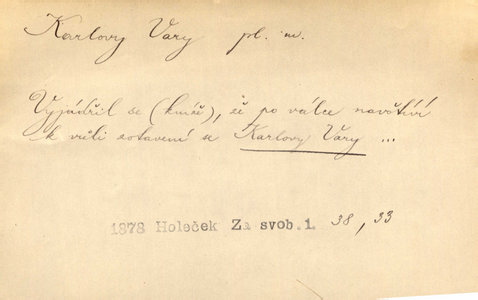 Karlovy Vary pl. m.
Vyjádřil se (kníže), že po válce navštíví
k vůli zotavení se Karlovy Vary ...
1878 Holeček Za svob. 1. 38, 33